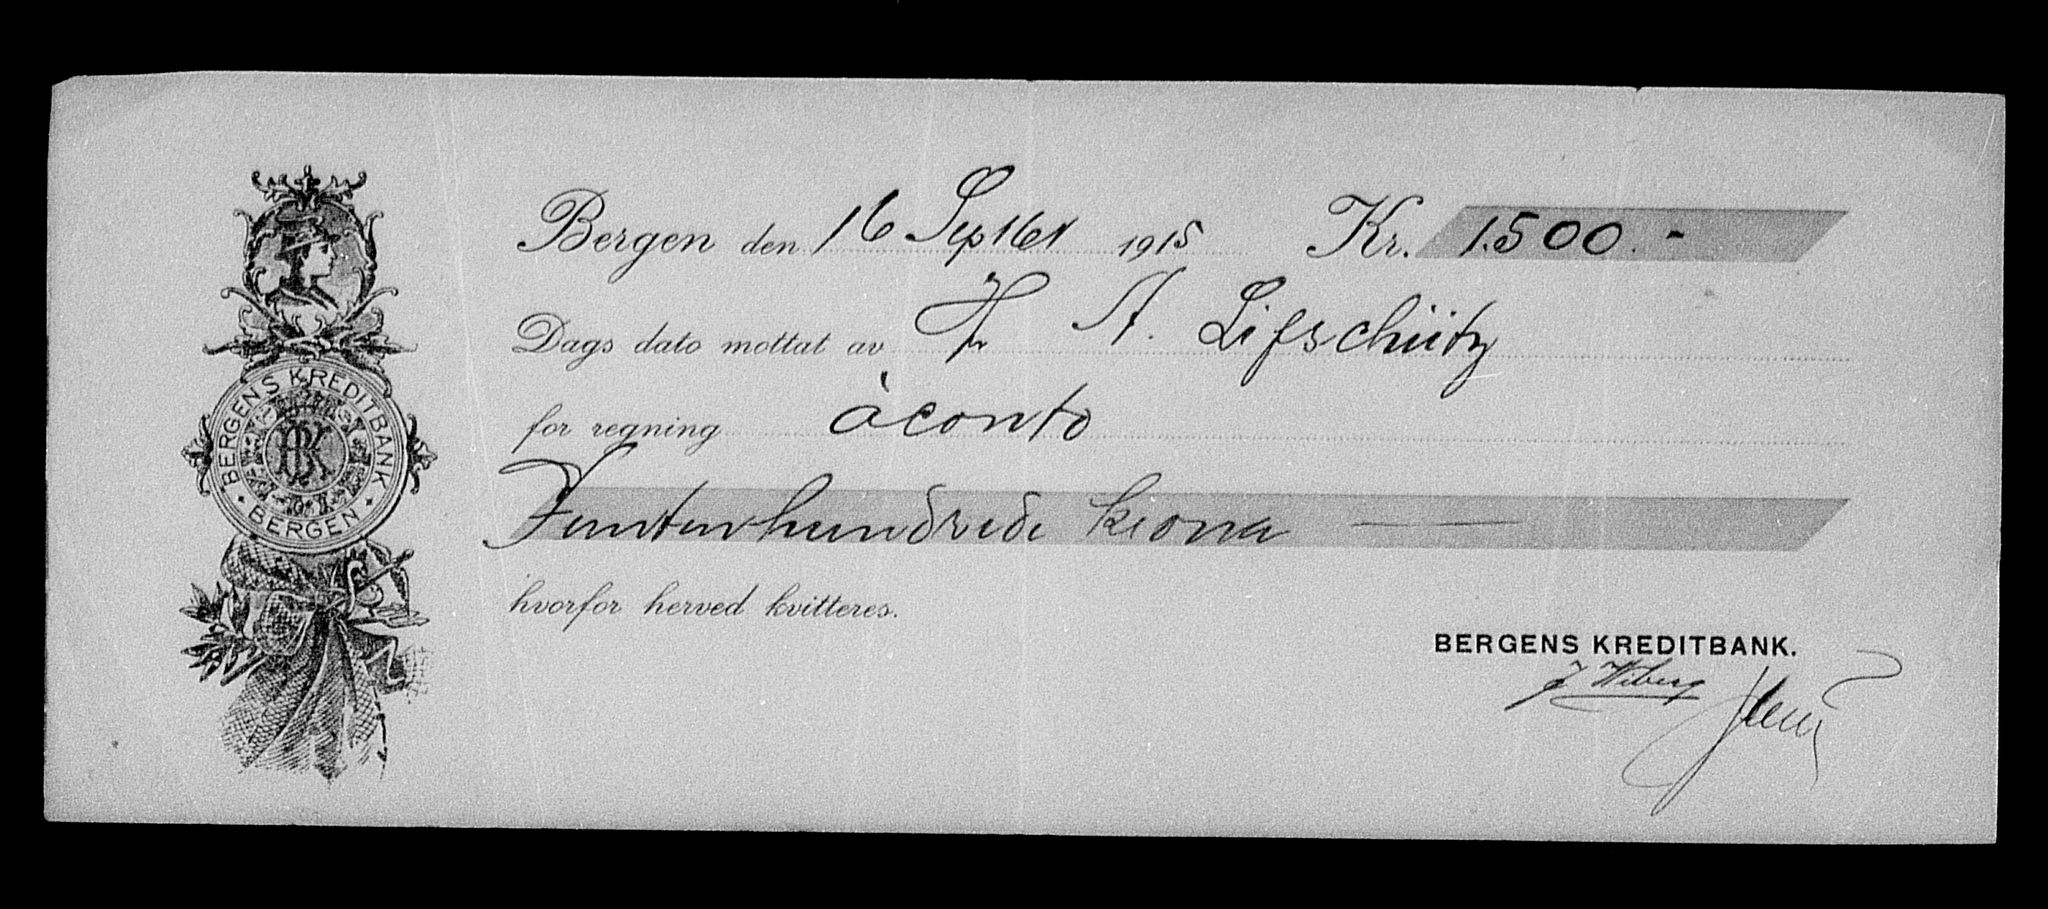 Bergen den 16 Septbr 1915 Kr. 1.500.-
Dags dato mottat av Hr A. Lifschütz
for regning àconto
Femtenhundrede krona
hvorfor herved kvitteres.
BERGENS KREDITBANK.
J Wiberg
BERGENS KREDITBANK
BK
BERGEN